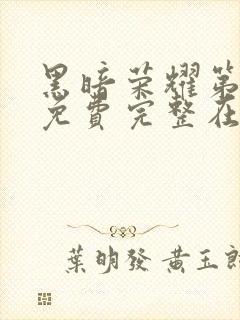 黑暗荣耀第
免費完整在
葉明發 黃玉郎